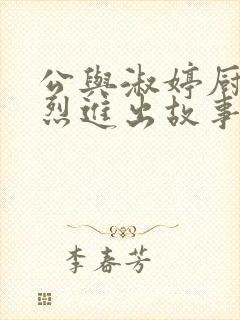 公與淑婷厨
烈進出故事
李春芳